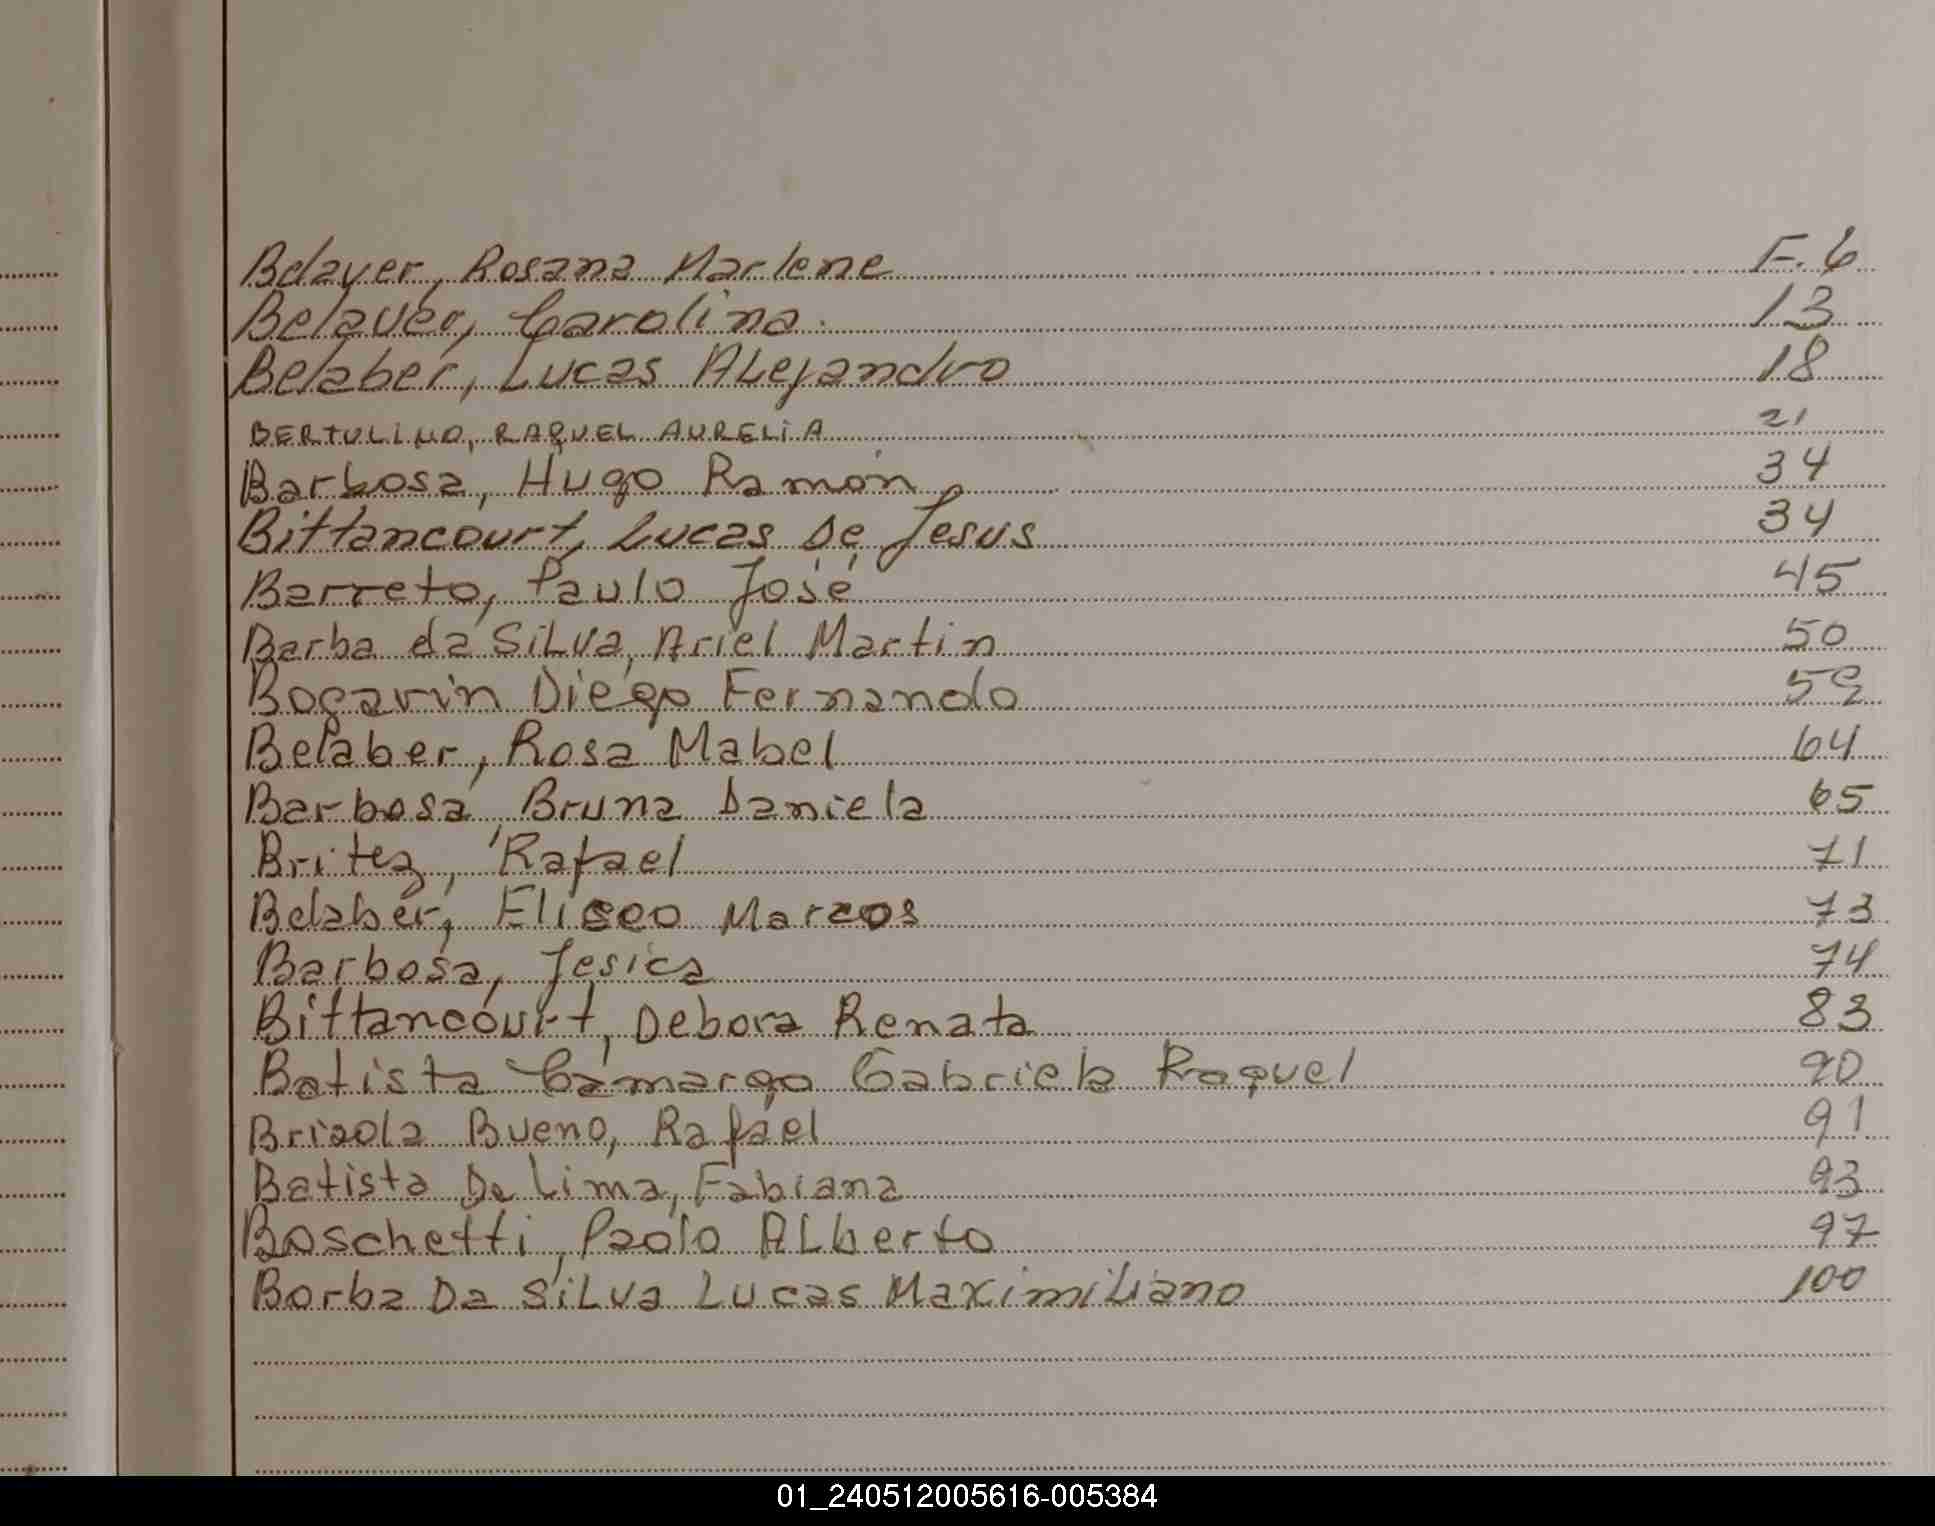 Belaver, Rosana Marlene F. 6
Belaver, Carolina. 13
Belaber, Lucas Alejandro 18
BERTULINO, RAQUEL AURELIA 21
Barbosa, Hugo Ramón 34
Bittancourt, Lucas De Jesus 34
Barreto, Paulo José 45
Barba da Silva, Ariel Martin 50
Bogarin Diego Fernando 59
Belaber, Rosa Mabel 64
Barbosa, Bruna Daniela 65
Britez, Rafael 71
Belaber, Eliseo Marcos 73
Barbosa, Jesica 74
Bittancourt, Debora Renata 83
Batista Camargo Gabriela Raquel 90
Brizola Bueno, Rafael 91
Batista De Lima, Fabiana 93
Boschetti, Paolo Alberto 97
Borba Da Silva Lucas Maximiliano 100
01_240512005616-005384